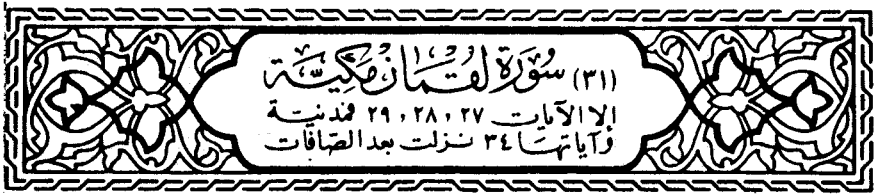 (٣١) سُورَة لُقْمَان مَكِّيَّة
إلا الآيات ٢٧، ٢٨، ٢٩ فمدنية
وآياتها ٣٤ نزلت بعد الصافات